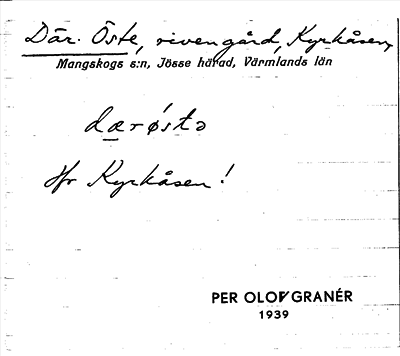 Där. Öste, rivengård, Kyrkåsen,
Mangskogs s:n, Jösse härad, Värmlands län
dærøstə
Hr Kyrkåsen!
PER OLOF GRANÉR
1939